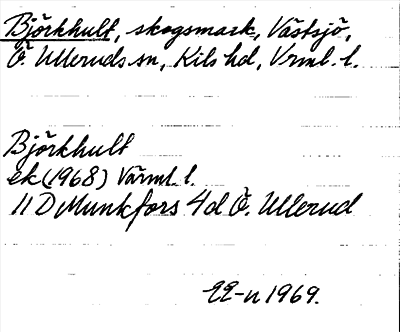 Björkhult, skogsmark, Västsjö,
Ö. Ulleruds sn, Kils hd, Vrml. l.
Björkhult
ek (1968) Värml. l.
11 D Munkfors 4d Ö. Ullerud
22-11 1969.